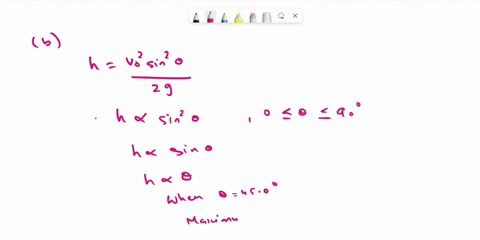 (b)
h = v₀² sin² θ / 2g
h ∝ sin² θ , 0 ≤ θ ≤ 90°
h ∝ sin θ
h ∝ θ
When θ = 45.0°
Maximu